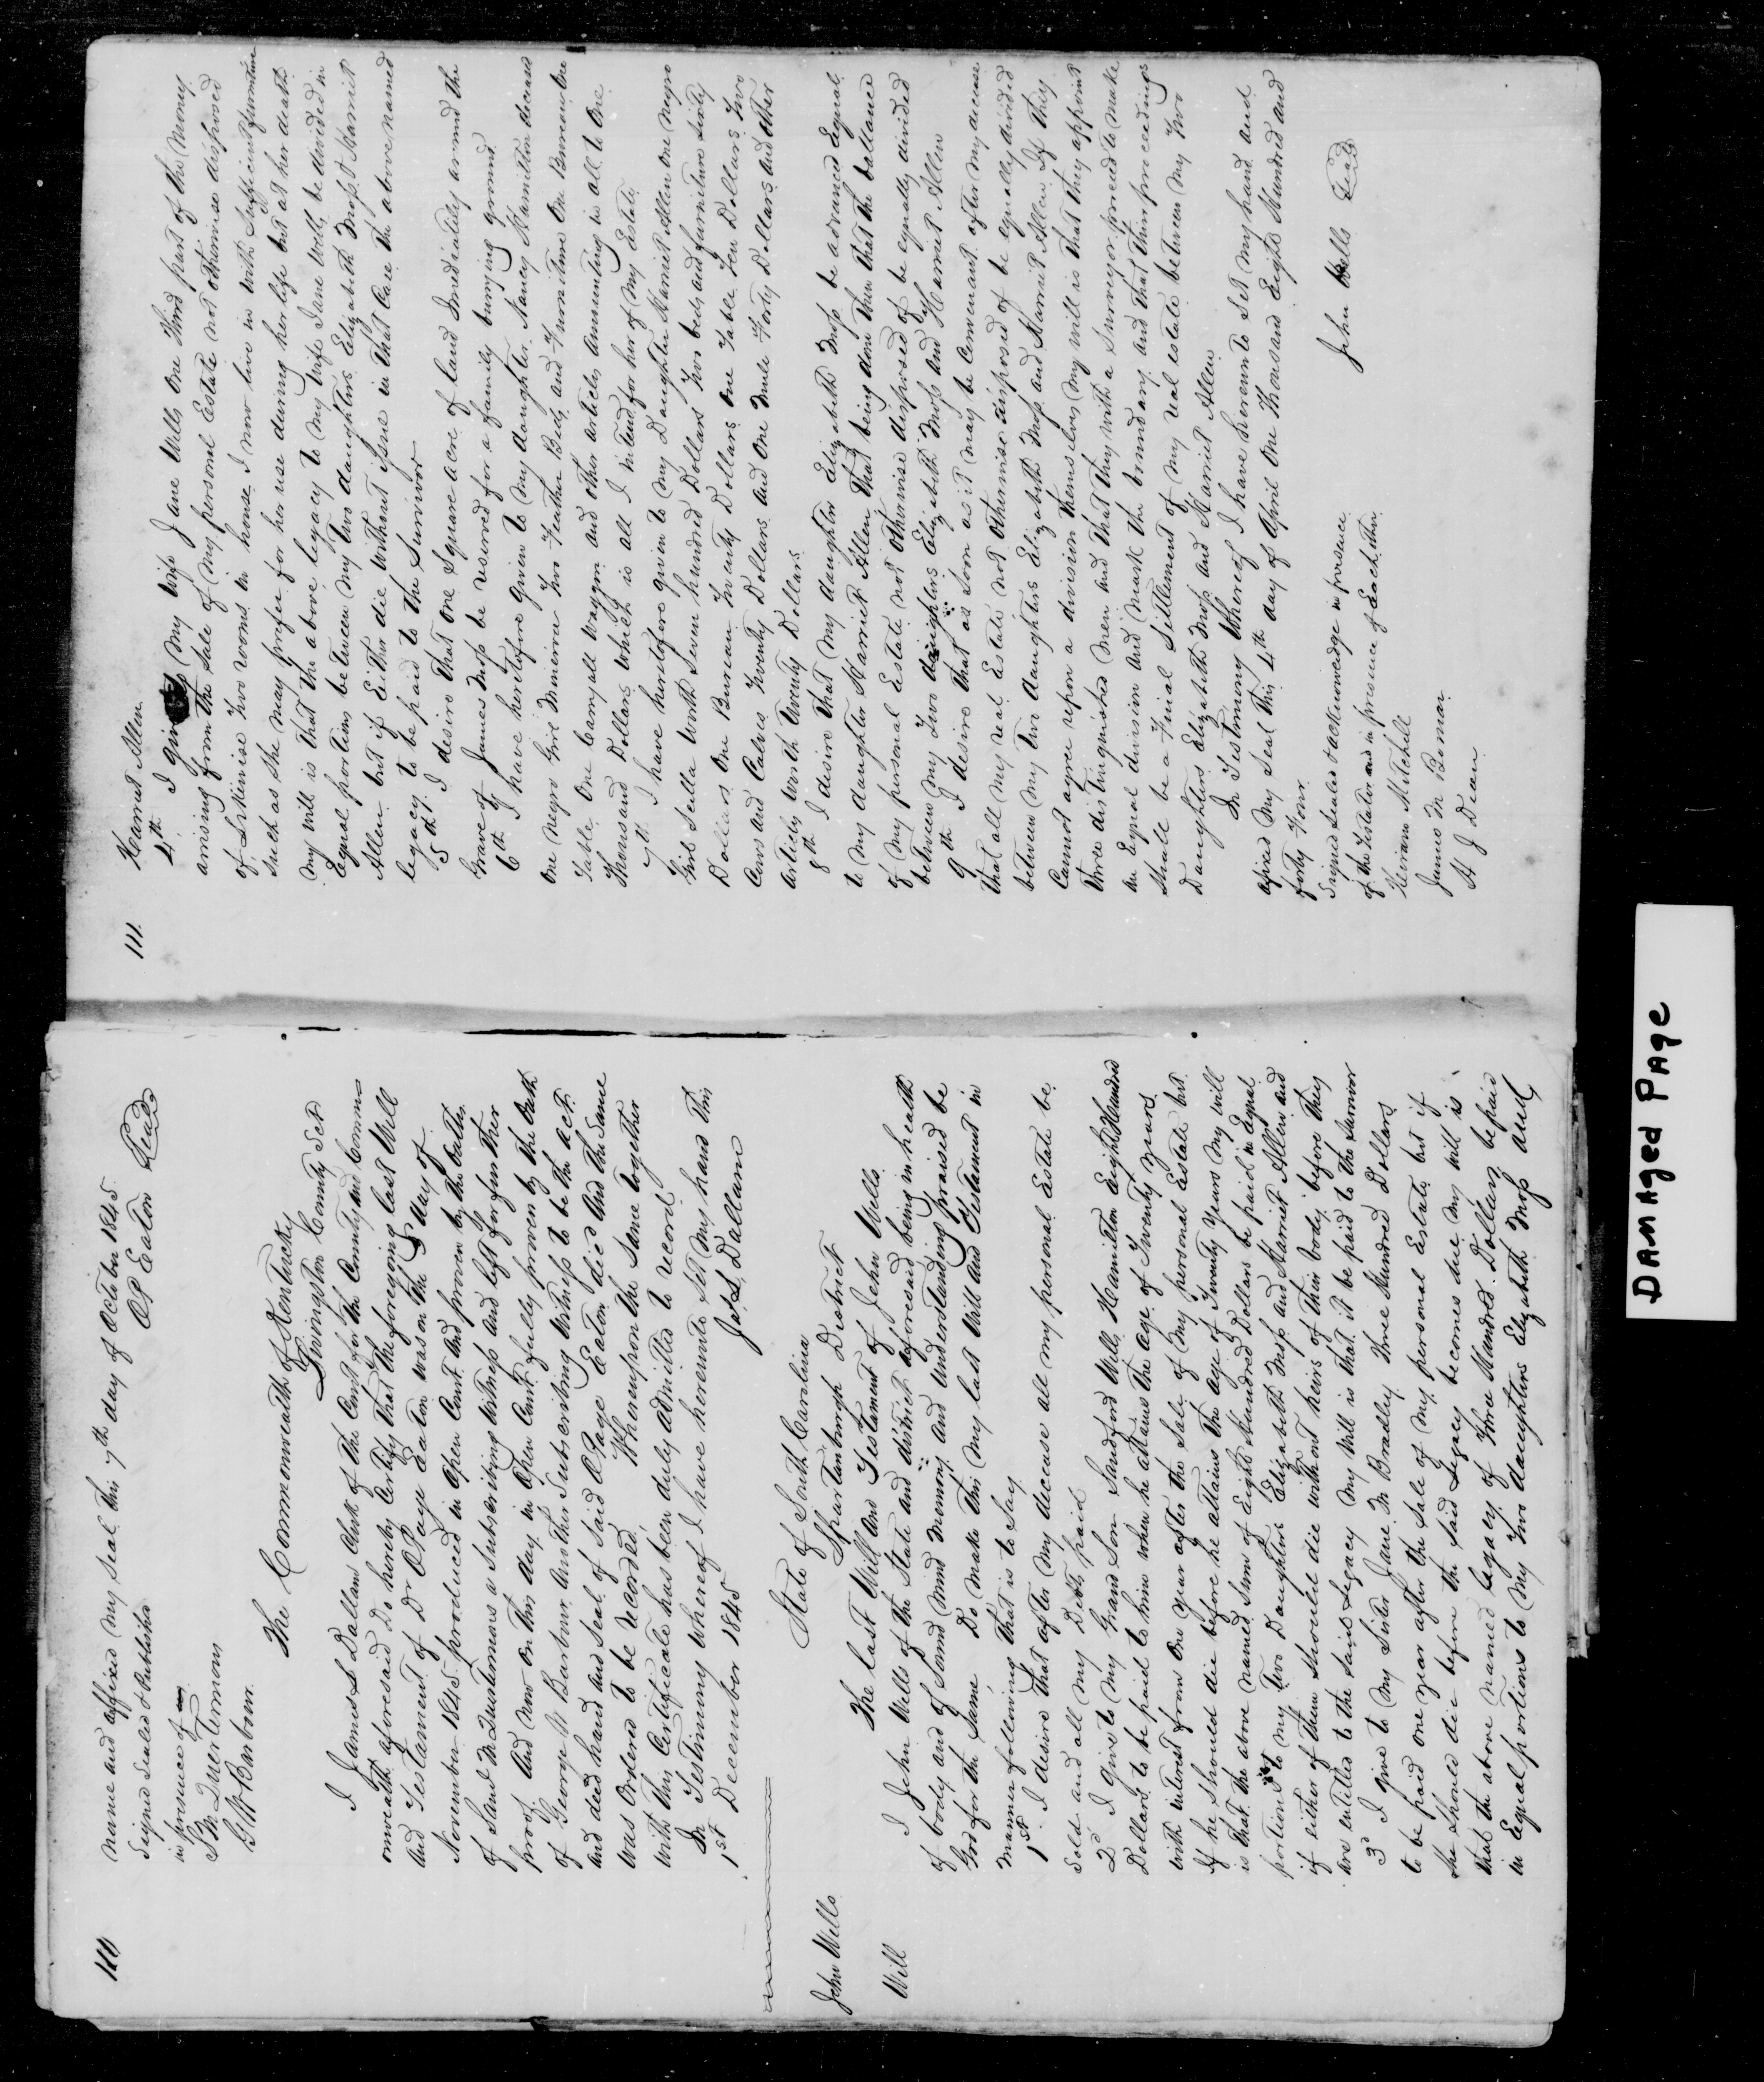 110
name and affixed my seal this 7th day of October 1845
Signed Sealed & Published
O P Eaton Seal
in presence of
S M Quertermous
G W Barbour
The Commonwealth of Kentucky
Livingston County Sct
I James L Dallam Clerk of the Court for the County and Common
onwealth aforesaid Do hereby Certify that the foregoing last Will
and Testament of Dr O Page Eaton was on the 5 day of
November 1845 produced in open Court and proven by the oath
of Saml M Quertermous a Subscribing witness and left for further
proof And now on this day in Open Court fully proven by the oath
of George W Barbour another Subscribing witness to be the act
and deed hand and Seal of Said O Page Eaton dec'd And the Same
was Ordered to be recorded, Whereupon the Same together
with this Certificate has been duly admitted to record
In Testimony whereof I have hereunto Set my hand this
1st December 1845 Jas L Dallam
John Wells
Will
State of South Carolina
Spartanburgh District
The last Will and Testament of John Wells
I John Wells of the State and district aforesaid being in health
of body and of Sound mind memory and understanding praised be
God for the Same Do make this my last Will and Testament in
manner following That is to Say
1st I desire that after my decease all my personal Estate be
Sold and all my Debts paid
2d I give to my Grand Son Sandford Wells Hamilton Eight Hundred
Dollars to be paid to him when he attains the age of Twenty years
with interest from one year after the Sale of my personal Estate but
if he Should die before he attains the age of Twenty years my will
is that the above named Sum of Eight Hundred Dollars be paid in Equal
portions to my Two Daughters Elizabeth Moss and Harriet Allen and
if either of them Should die without heirs of their body before they
are entitled to the said Legacy my Will is that it be paid to the Survivor
3d I give to my Sister Jane M Bradley three Hundred Dollars
to be paid one year after the Sale of my personal Estate but if
She Should die before the Said Legacy becomes due my will is
that the above named Legacy of Three Hundred Dollars be paid
in Equal portions to my Two daughters Elizabeth Moss and
111
Harriet Allen
4th I give my wife Jane Wells one Third part of the money
arrising from the Sale of my personal Estate not otherwise disposed
of Likewise Two rooms in house I now live in with Sufficient furniture
Such as She may prefer for her use during her life but at her death
my will is that the above legacy to my wife Jane Wells be divided in
Equal portions between my Two daughters Elizabeth Moss & Harriet
Allen but if Either die without Issue in that Case the above named
legacy to be paid to the Survivor
5th I desire that one Square acre of land Imediately around the
Grave of James Moss be reserved for a family burying ground
6th I have heretofore given to my daughter Nancy Hamilton deceased
One negro Girl Minerva Two Feather Beds and Furniture One Bureau One
Table One Carryall waggon and other articles Amounting in all to One
Thousand Dollars which is all I intend for her of my Estate
7th I have heretofore given to my Daughter Harriet Allen one negro
Girl Scilla worth Seven hundred Dollars Two beds and furniture Sixty
Dollars One Bureau Twenty Dollars One Table Ten Dollars Two
Cows and Calves Twenty Dollars and One Mule Forty Dollars and other
articles worth Twenty Dollars
8th I desire that my daughter Elizabeth Moss be advanced Equal
to my daughter Harriet Allen that being done then that the ballance
of my personal Estate not otherwise disposed of be equally divided
between my Two daughters Elizabeth Moss and Harriet Allen
9th I desire that as Soon as it may be Convenient after my decease
that all my real Estate not otherwise disposed of be equally divided
between my Two daughters Elizabeth Moss and Harriet Allen If they
Cannot agree upon a division themselves my will is that they appoint
three distinguished men and that they with a Surveyor proceed to make
an Equal division and mark the boundary and that their proceedings
Shall be a Final Settlement of my real estate between my Two
Daughters Elizabeth Moss and Harriet Allen
In Testimony Whereof I have hereunto Set my hand and
afixed my Seal this 4th day of April One Thousand Eight Hundred and
forty Four
Signed Sealed & acknowledge in presence
of the Testator and in presence of Each other
John Wells Seal
Hiram Mitchell
James M Boman
H J Dean
DAMAged PAge